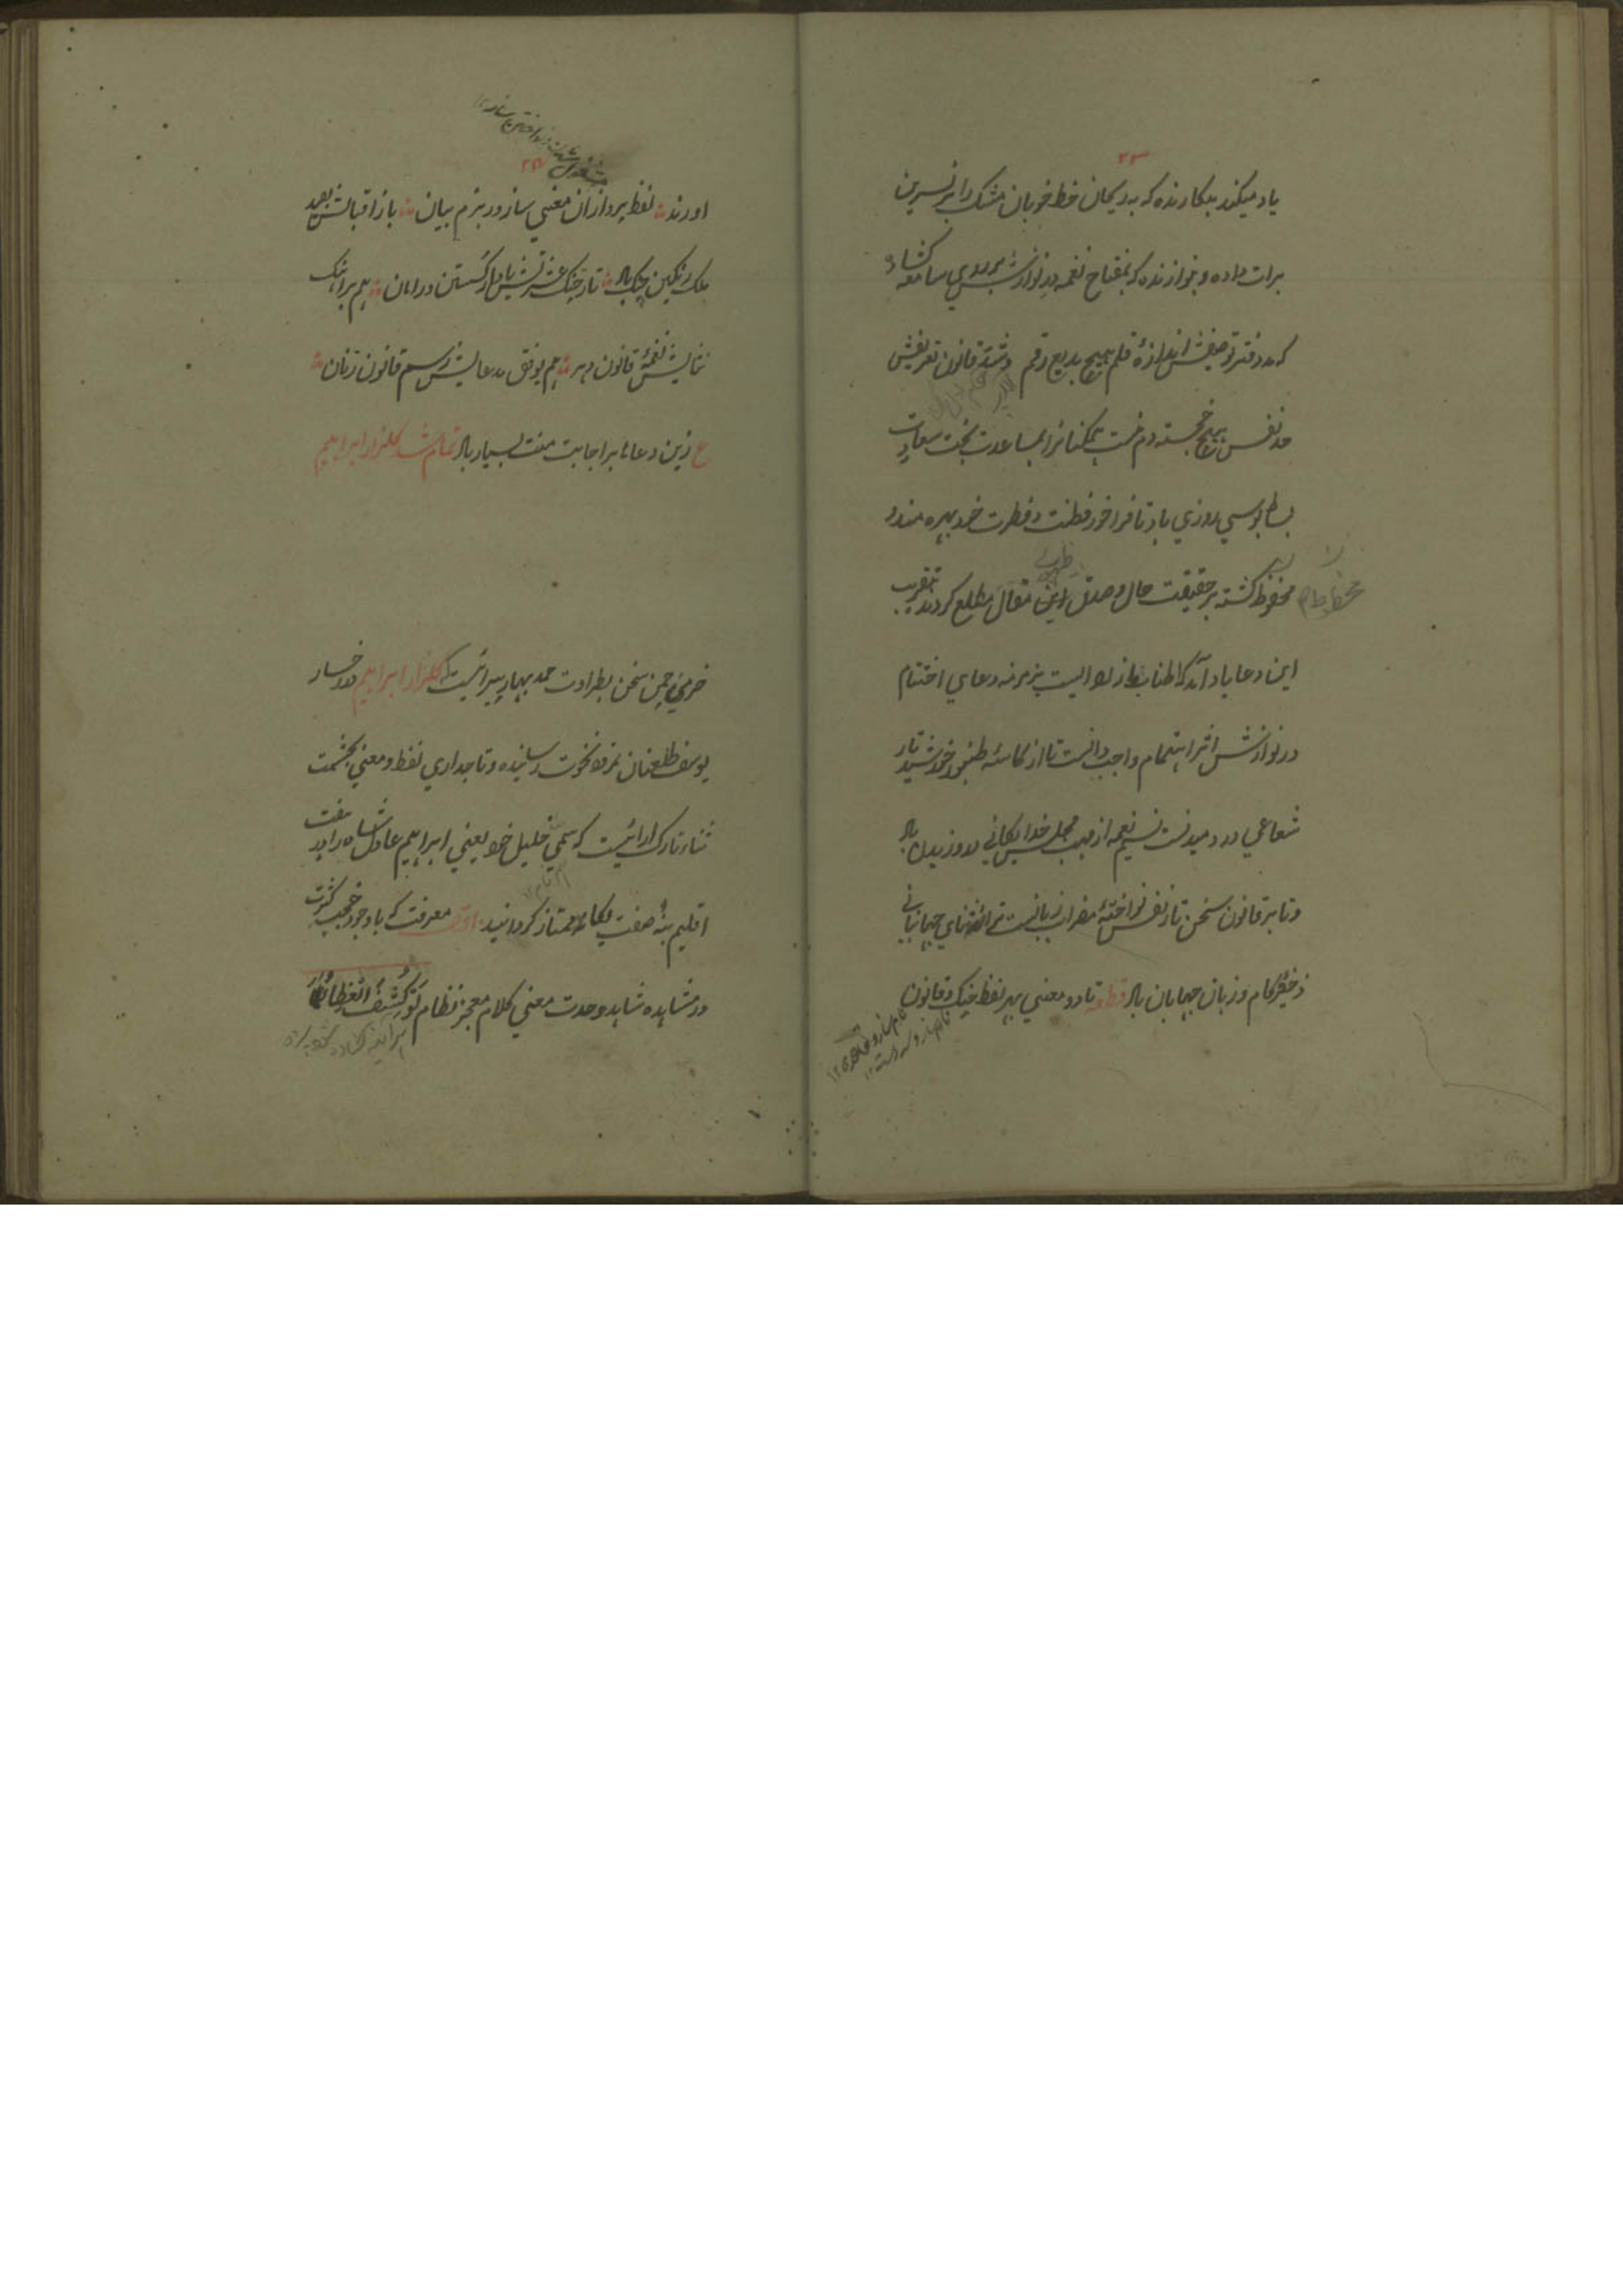 ۲۳
یاد میکند بنکارنده که به ریحان خط خوبان مشک را بر نسرین
برات داده و بنوازنده که بمفتاح نغمه در نوازش بر روی سامعه کشاده
که در دفتر توصیفش اندازه قلم هیچ بدیع رقم و رشته قانون تعریفش
حد نفس هیچ خجسته دم نیست همکنانرا بمساعدت بخت سعادت
بساط بوسی روزی باد تا فراخور فطنت و فطرت خود بهره مند و
محفوظ کشته بر حقیقت حال و صدق این مقال مطلع کردند بتقریب
این دعا یاد آمد که اطناب بزمزمه دعای اختتام
در نوازش اثر اهتمام واجب دانست تا از کاسه طنبور خورشید تار
شعاعی در دمیدنست نسیم نغمه از مهب مجلس خدایکانی در وزیدن باد
و تا بر قانون سخن تار نفس نواختهٔ مضراب زبانست ترانه ثنای جهانبانی
ذخیره کام و زبان جهانیان باد قطعه تا دو معنی بهر لفظ چنک و قانون
۲۴
اورند لفظ پردازان معنی ساز در بزم بیان باز اقبالش بصید
ملک رنکین چنک باد تار چنک عشرتش باد از کسستن در امان هم براهنک
نمایش نغمهٔ قانون دهر هم بوفق مدعایش رسم قانون زنان
ع زین دعاها بر اجابت منت بسیار باد تمام شد کلزار ابراهیم
خرمی چمن سخن بطراوت حمد بهار پیرائیست که کلزار ابراهیم در رخسار
یوسف طلعتان نمرود نخوت رسانیده و تاجداری لفظ و معنی بحشمت
ثنا تارک ارائیست که سمی خلیل خود یعنی ابراهیم عادل شاه را در هفت
اقلیم بنه صفت یکانه و ممتاز کردانید اول معرفت که با وجود حجب کثرت
در مشاهده شاهد وحدت معنی کلام معجز نظام لو کشف الغطاء